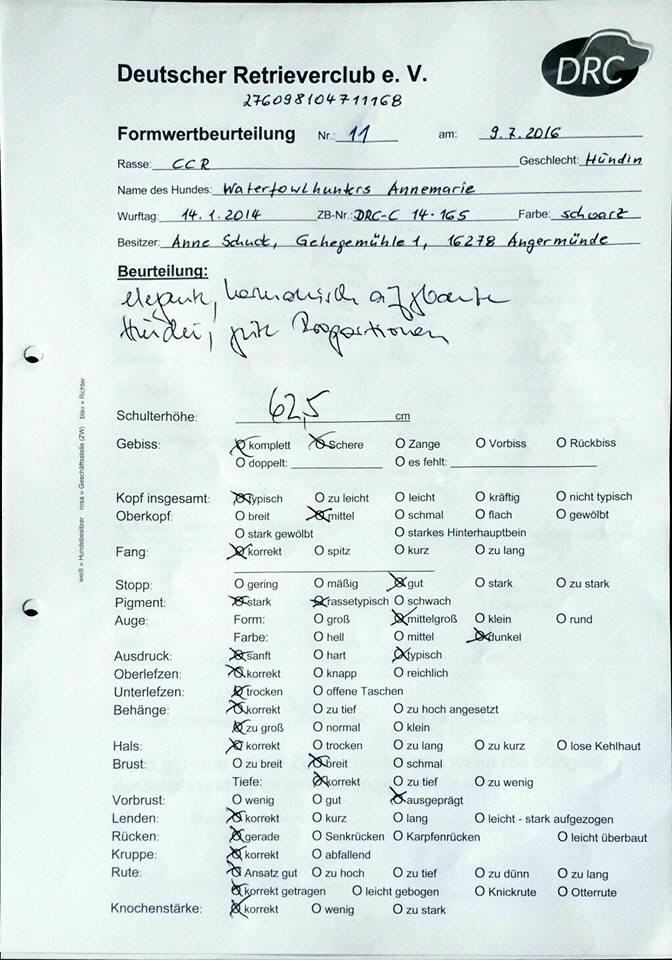 DRC
Deutscher Retrieverclub e. V.
276098104711168
Formwertbeurteilung Nr.: 11 am: 9.7.2016
Rasse: CCR Geschlecht: Hündin
Name des Hundes: Waterfowlhunters Annemarie
Wurftag: 14.1.2014 ZB-Nr.: DRC-C 14-165 Farbe: schwarz
Besitzer: Anne Schuck, Gehegemühle 1, 16278 Angermünde
Beurteilung:
elegante, harmonisch aufgebaute
Hündin, gute Proportionen
Schulterhöhe: 62,5 cm
Gebiss: komplett Schere Zange Vorbiss Rückbiss
doppelt: es fehlt:
Kopf insgesamt: typisch zu leicht leicht kräftig nicht typisch
Oberkopf: breit mittel schmal flach gewölbt
stark gewölbt starkes Hinterhauptbein
Fang: korrekt spitz kurz zu lang
Stopp: gering mäßig gut stark zu stark
Pigment: stark rassetypisch schwach
Auge: Form: groß mittelgroß klein rund
Farbe: hell mittel dunkel
Ausdruck: sanft hart typisch
Oberlefzen: korrekt knapp reichlich
Unterlefzen: trocken offene Taschen
Behänge: korrekt zu tief zu hoch angesetzt
zu groß normal klein
Hals: korrekt trocken zu lang zu kurz lose Kehlhaut
Brust: zu breit breit schmal
Tiefe: korrekt zu tief zu wenig
Vorbrust: wenig gut ausgeprägt
Lenden: korrekt kurz lang leicht - stark aufgezogen
Rücken: gerade Senkrücken Karpfenrücken leicht überbaut
Kruppe: korrekt abfallend
Rute: Ansatz gut zu hoch zu tief zu dünn zu lang
korrekt getragen leicht gebogen Knickrute Otterrute
Knochenstärke: korrekt wenig zu stark
weiß = Hundebesitzer rosa = Geschäftsstelle (ZW) blau = Richter